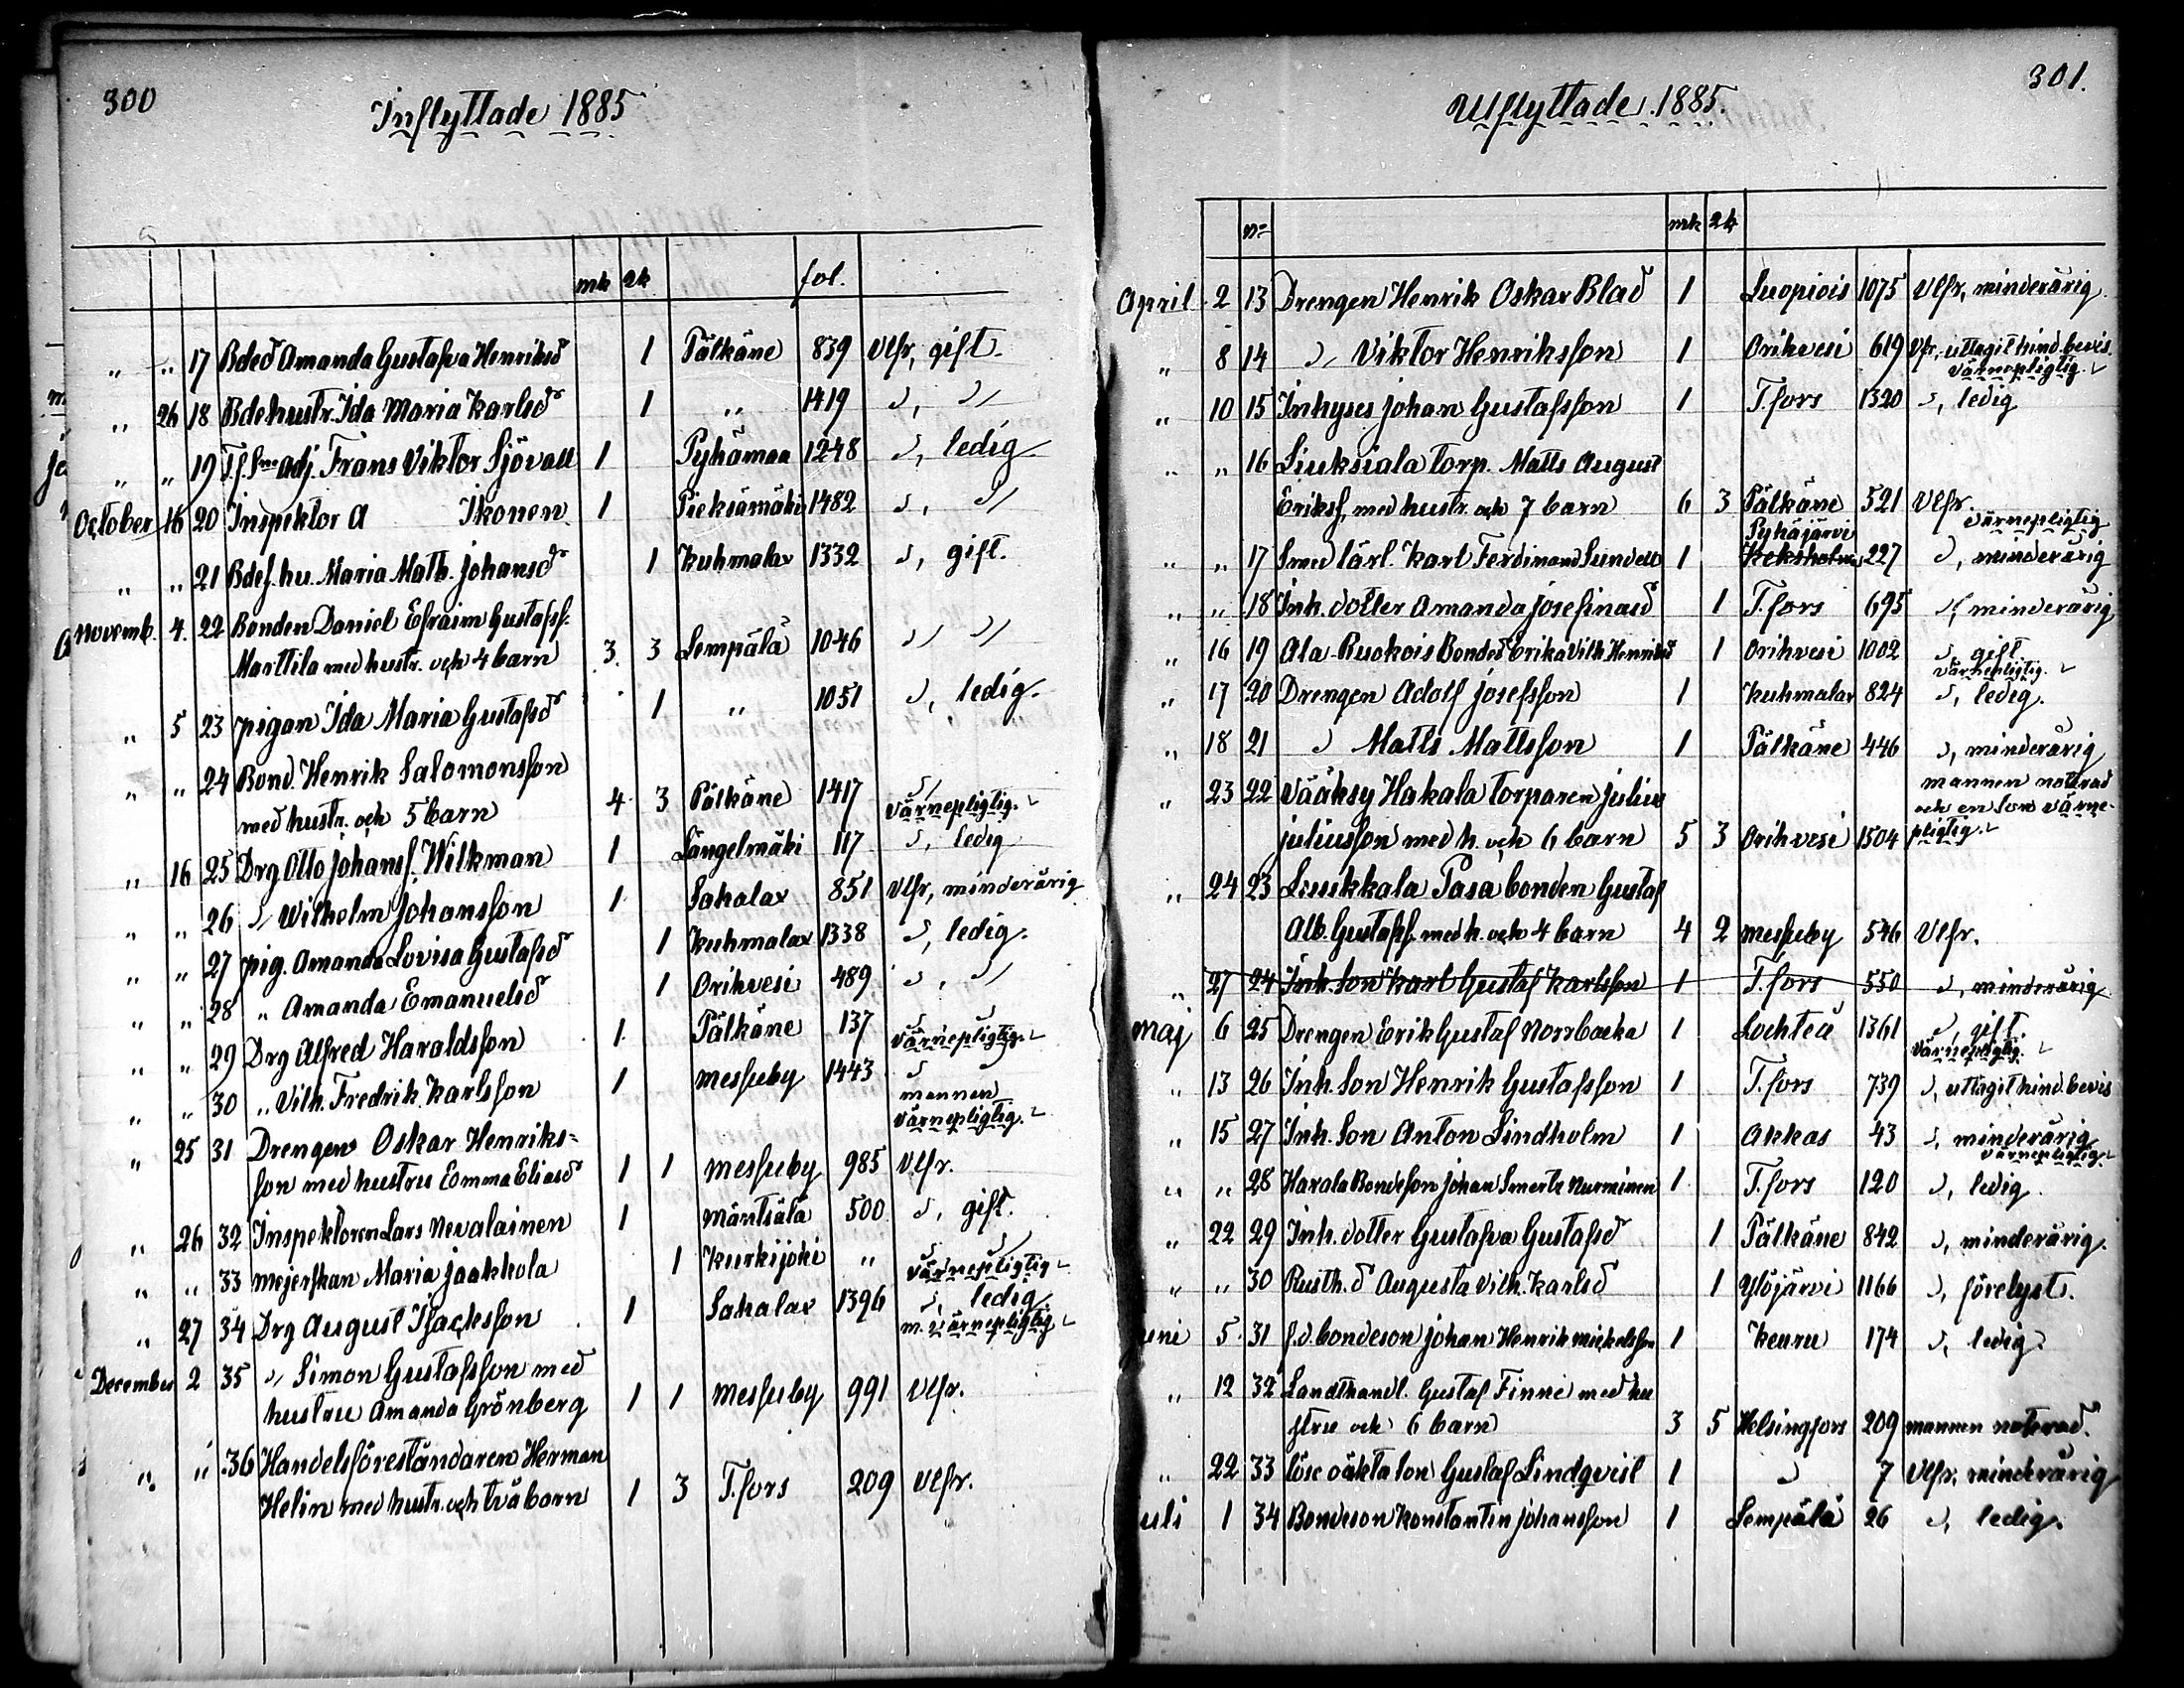 300
Inflyttade 1885
mk qk fol.
" " 17 Bded Amanda Gustafva Henriksd 1 Pälkäne 839 Vlfr, gift.
" 26 18 Bdehustr. Ida Maria Karlsd 1 " 1419 " "
" " 19 T.f. Sme adj. Frans Viktor Sjövall 1 Pyhämaa 1248 ", ledig
October 16 20 Inspektor A Ikonen 1 Pieksämäki 1482 ", "
" " 21 Bdef. hu. Maria Math. Johansd 1 Kuhmalax 1332 ", gift.
Novemb. 4. 22 Bonden Daniel Efraim Gustafsf.
Marttila med hustr. och 4 barn 3. 3 Lempälä 1046 " "
" 5 23 pigan Ida Maria Gustafsd 1 " 1051 ", ledig.
" " 24 Bond. Henrik Salomonsson
med hustr. och 5 barn 4 3 Pälkäne 1417 "
värnepligtig.
" 16 25 Drg Otto Johansf. Wilkman 1 Längelmäki 117 ", ledig
" " 26 " Wilhelm Johansson 1 Sahalax 851 Vlfr, minderårig
" " 27 pig. Amanda Lovisa Gustafsd 1 Kuhmalax 1338 ", ledig.
" " 28 " Amanda Emanuelsd 1 Orihvesi 489 ", "
" " 29 Drg Alfred Haraldsson 1 Pälkäne 137 " "
värnepligtig.
" " 30 " Vilh. Fredrik Karlsson 1 Messuby 1443 " "
mannen
värnepligtig.
" 25 31 Drengen Oskar Henriks-
son med hustru Emma Eliasd 1 1 Messuby 985 Vlfr.
" 26 32 Inspektoren Lars Nevalainen 1 Mäntsälä 500 ", gift.
" " 33 Mejerskan Maria Jaakkola 1 Kurkijoki " " "
värnepligtig
" 27 34 Drg August Isacksson 1 Sahalax 1396 ", ledig
m. värnepligtig
December 2 35 " Simon Gustafsson med
hustru Amanda Grönberg 1 1 Messuby 991 Vlfr.
" " 36 Handelsföreståndaren Herman
Helin med hustr. och två barn 1 3 T.fors 209 Vlfr.
301.
Utflyttade 1885.
no mk qk
April 2 13 Drengen Henrik Oskar Blad 1 Luopiois 1075 Vlfr, minderårig
" 8 14 " Viktor Henriksson 1 Orihvesi 619 Vfr, uttagit hind. bevis.
värnepligtig.
" 10 15 Inhyses Johan Gustafsson 1 T.fors 1320 ", ledig
" " 16 Liuksiala torp. Matts August
Eriksf. med hustr. och 7 barn 6 3 Pälkäne 521 Vlfr.
Pyhäjärvi värnepligtig
" " 17 Smed lärl. Karl Ferdinand Sundell 1 Keksholm 227 ", minderårig
" " 18 Inh. dotter Amanda Josefinasd 1 T.fors 695 ", minderårig
" 16 19 Ala-Ruokois Bonded Erika Vilh. Henriksd 1 Orihvesi 1002 ", gift.
värnepligtig.
" 17 20 Drengen Adolf Josefsson 1 Kuhmalax 824 ", ledig.
" 18 21 " Matts Mattsson 1 Pälkäne 446 ", minderårig
" 23 22 Vääksy Hakala torparen Julius mannen noterad
och en son värne-
Juliusson med h. och 6 barn 5 3 Orihvesi 1504 pligtig.
" 24 23 Liuikkala Pasa bonden Gustaf
Alb. Gustafsf. med h. och 4 barn 4 2 Messuby 546 Vlfr.
" 27 24 Inh. son Karl Gustaf Karlsson 1 T.fors 550 ", minderårig
Maj 6 25 Drengen Erik Gustaf Norrbacka 1 Lochteå 1361 ", gift.
värnepligtig.
" 13 26 Inh. son Henrik Gustafsson 1 T.fors 739 ", uttagit hind. bevis
" 15 27 Inh. son Anton Lindholm 1 Akkas 43 ", minderårig
värnepligtig
" " 28 Harala Bondeson Johan Smerts Nurminen 1 T.fors 120 ", ledig
" 22 29 Inh. dotter Gustafva Gustafsd 1 Pälkäne 842 ", minderårig.
" " 30 Rusth. d Augusta Vilh. Karlsd 1 Ylöjärvi 1166 ", förelyst.
uni 5 31 f.d. bondeson Johan Henrik Mickelsson 1 Keuru 174 ", ledig
" 12 32 Landthandl. Gustaf Finne med hu
stru och 6 barn 3 5 Helsingfors 209 mannen noterad.
" 22 33 lösc oäkta son Gustaf Lindqvist 1 " 7 Vlfr, minderårig
uli 1 34 Bondeson Konstantin Johansson 1 Lempälä 26 ", ledig.